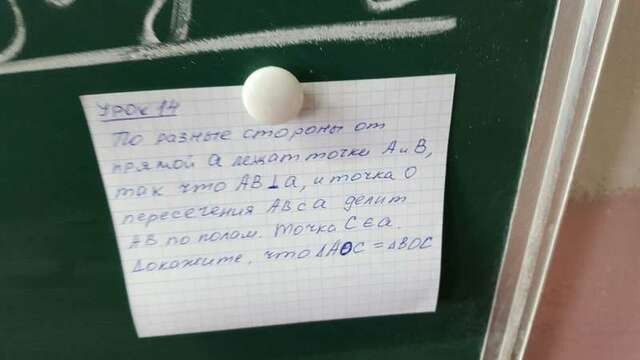 Урок 14
По разные стороны от
прямой a лежат точки A и B,
так что AB⊥a, и точка O
пересечения AB с a делит
AB по полам. Точка C∈a.
Докажите, что △AOC = △BOC